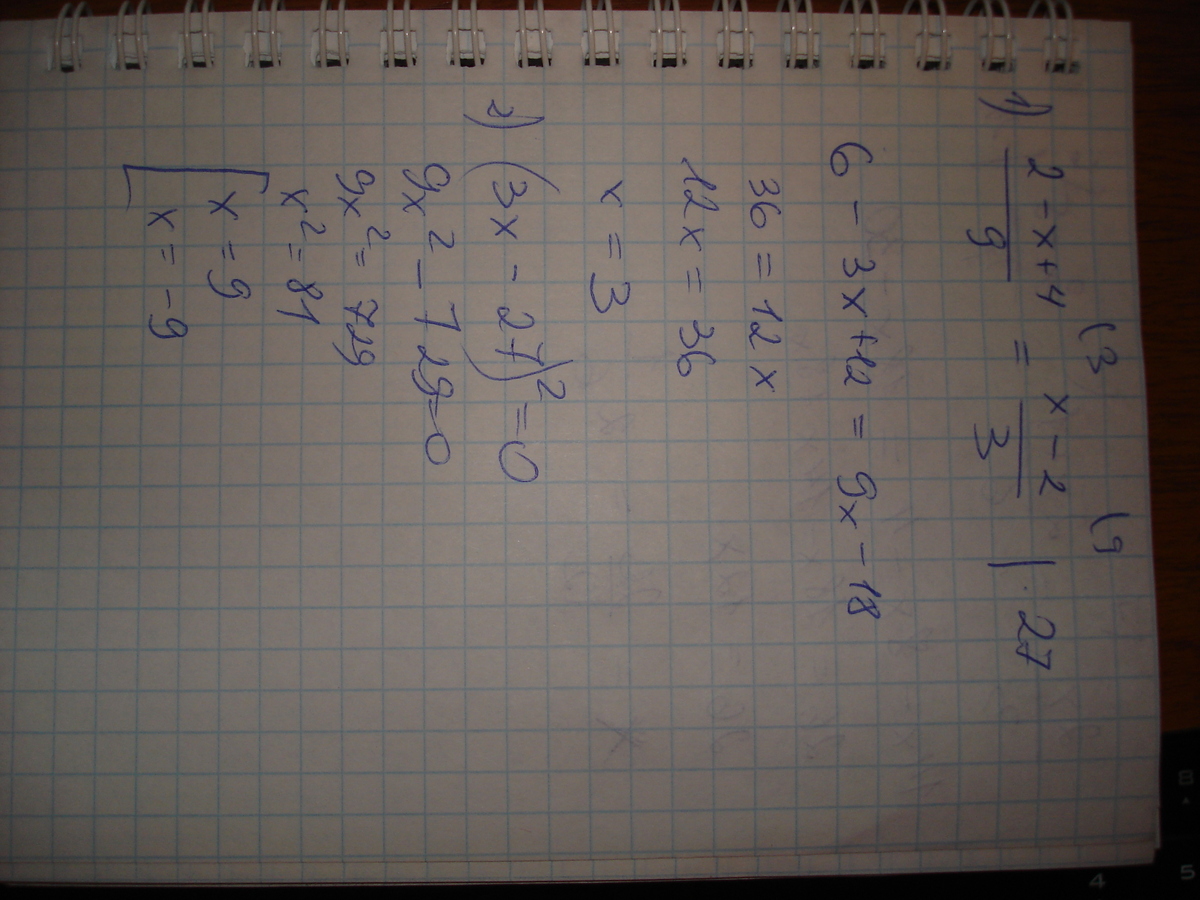 (3 (9
1) 2-x+4/9 = x-2/3 | · 27
6 - 3x+12 = 9x - 18
36 = 12x
12x = 36
x = 3
2) (3x - 27)² = 0
9x² - 729=0
9x² = 729
x² = 81
[x = 9
x = -9